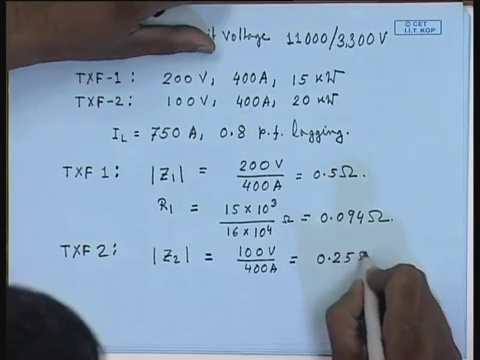 it Voltage 11000/3,300V
© CET
I.I.T. KGP
TXF-1: 200V, 400A, 15 kW
TXF-2: 100V, 400A, 20 kW
I_L = 750 A, 0.8 p.f. lagging.
TXF 1: |Z₁| = 200V/400A = 0.5Ω.
R₁ = 15×10³/16×10⁴ Ω = 0.094Ω.
TXF 2: |Z₂| = 100V/400A = 0.25Ω